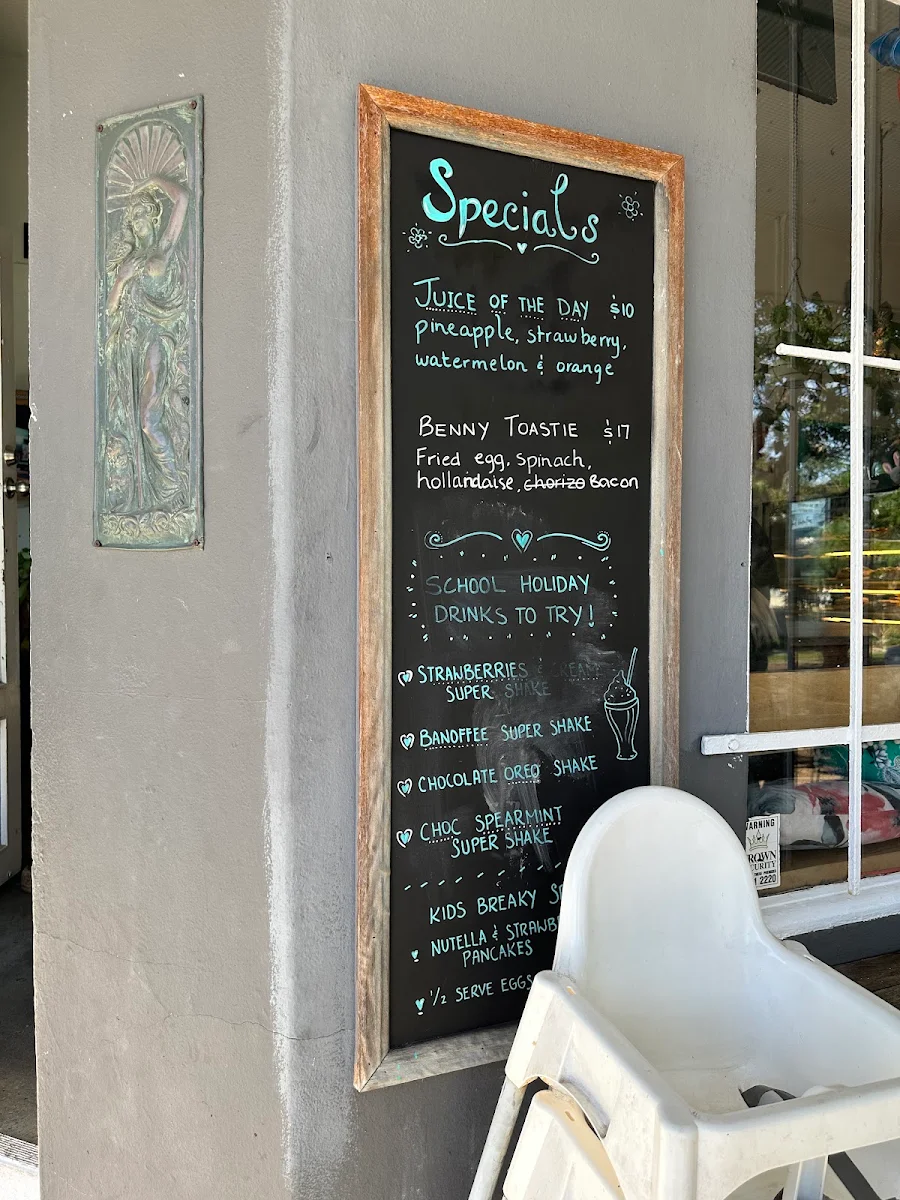 Specials
JUICE OF THE DAY $10
pineapple, strawberry,
watermelon & orange
BENNY TOASTIE $17
Fried egg, spinach,
hollandaise, chorizo Bacon
SCHOOL HOLIDAY
DRINKS TO TRY!
STRAWBERRIES & CREAM
SUPER SHAKE
BANOFFEE SUPER SHAKE
CHOCOLATE OREO SHAKE
CHOC SPEARMINT
SUPER SHAKE
KIDS BREAKY
NUTELLA & STRAWB
PANCAKES
1/2 SERVE EGGS
WARNING
2220